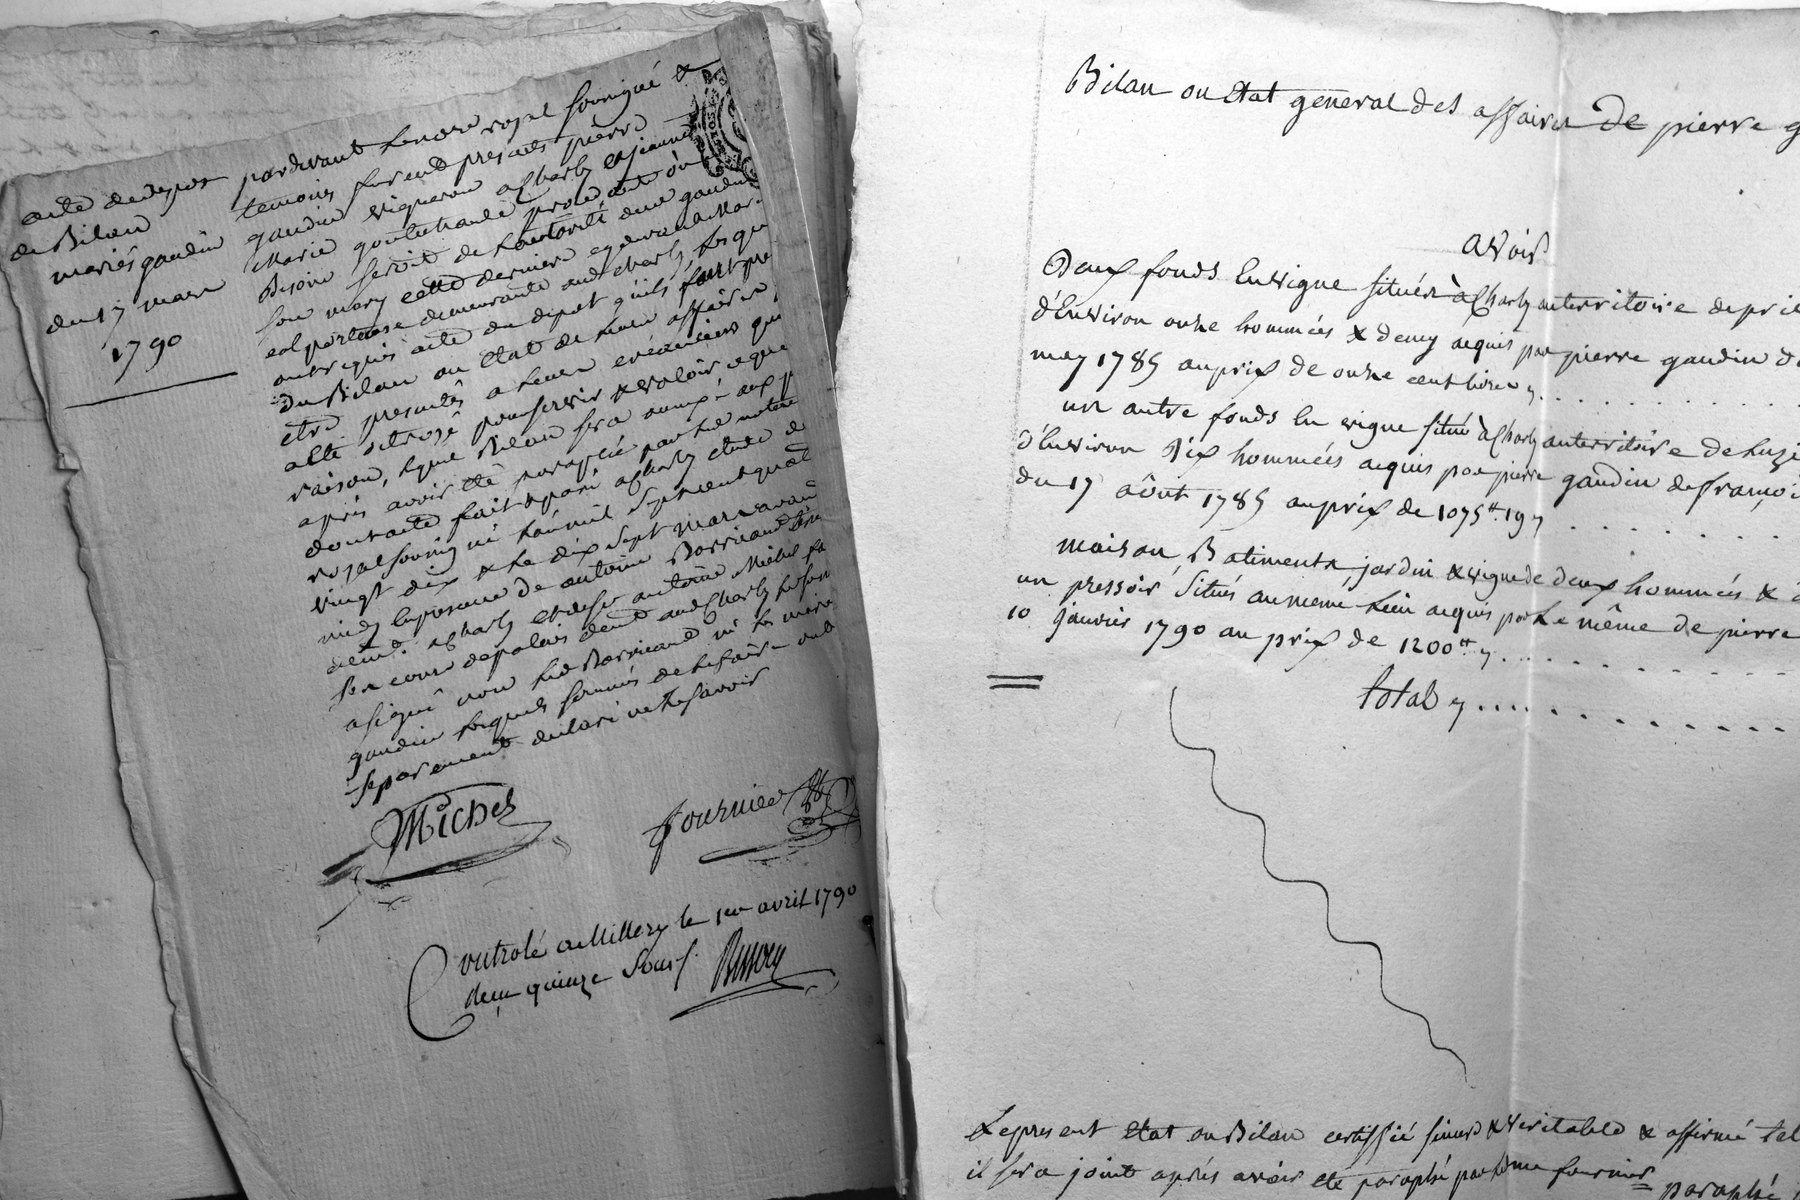 acte de depot
de Bilan
mariés gaudin
du 17 mars
1790
pardevant le notaire royal soussigné &
temoins furent presents pierre
gaudin vigneron a Charly & jeanne
Marie
Besoin seroit de l'autorité dud gaudin
son mary cette derniere
demeurants aud Charly, lesquels
ont requis acte du depot qu'ils font
du Bilan ou Etat de leurs affaires
etre presentés a leurs créanciers
pour servir & valoir
raison, lequel Bilan sera
après avoir été paraphé par led notaire
dont acte fait & passé a Charly etude
royal soussigné l'an mil sept cent quatre
vingt dix & le dix sept mars avant
midy en presence de antoine Barricand
demt. a Charly & de sr antoine Michel
demt aud Charly
a signé non led Barricand ni les mariés
gaudin lesquels sommés de le faire
separement ont déclaré ne le savoir
Michel
fournier
Controlé a Millery le 1er avril 1790
reçu quinze sous
Bilan ou Etat general des affaires de pierre g
avoir
Deux fonds en vigne situés à Charly au territoire de
d'Environ onze hommées & demy acquis par pierre gaudin
may 1785 au prix de onze cent livres
un autre fonds en vigne situé à Charly au territoire de
d'Environ dix hommées acquis par pierre gaudin de françois
du 17 août 1785 au prix de 1075tt 19
maison, Batiments, jardin & vigne de deux hommées &
un pressoir situés au meme lieu acquis par le même de pierre
10 janvier 1790 au prix de 1200tt
total
Le present Etat ou Bilan certiffié sincere & veritable & affirmé tel
il sera joint après avoir été paraphé par me fournier paraphé